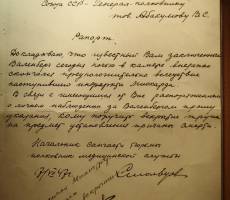 Союза ССР - Генерал-полковнику
тов. Абакумову В.С.
Рапорт.
Докладываю, что известный Вам заключенный
Валленберг сегодня ночью в камере внезапно
скончался предположительно вследствие
наступившего инфаркта миокарда.
В связи с имеющимся от Вас распоряжением
о личном наблюдении за Валленбергом прошу
указания, кому поручить вскрытие трупа
на предмет установления причины смерти.
Начальник Санчасти тюрьмы
полковник медицинской службы
17/VII 47г. Смольцов